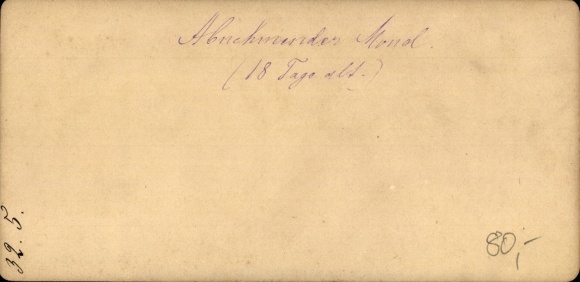 Abnehmender Mond.
(18 Tage alt.)
32. 5.
80,-